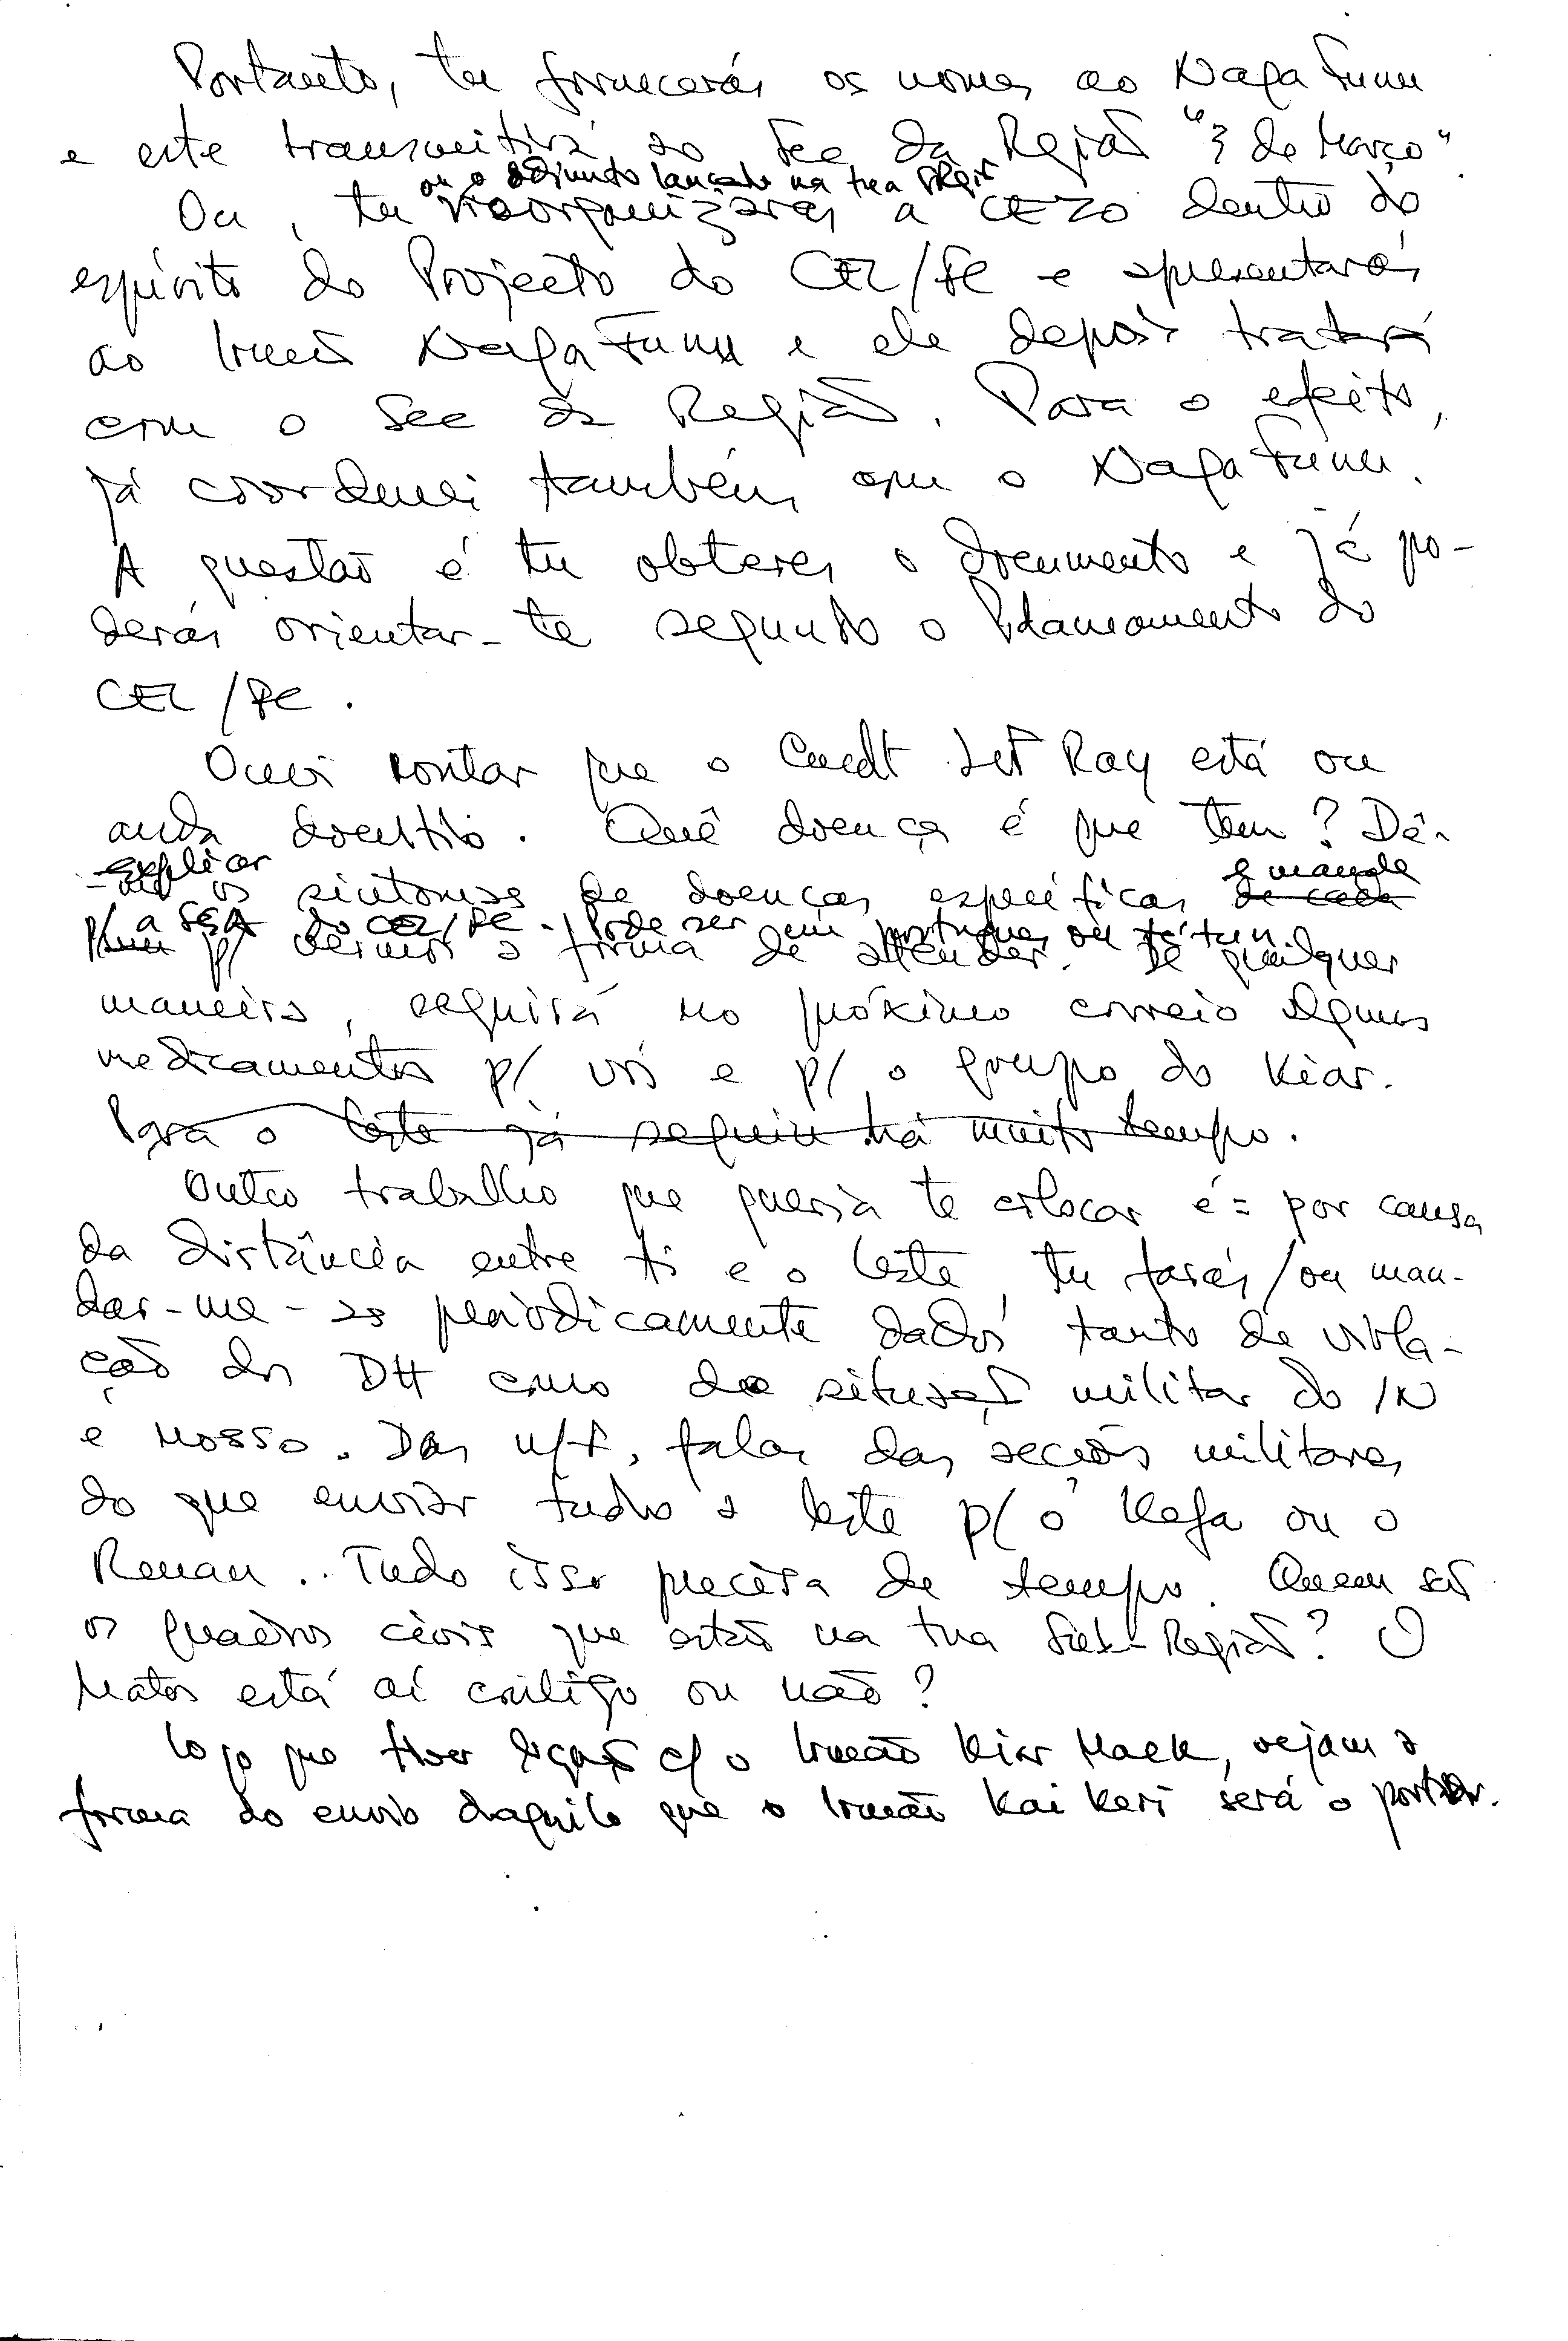 Portanto, tu fornecerás os nomes ao Naga Funu
e este transmitirá ao Sec da Região "3 de Março".
ou o adjunto lançado na tua SReg
Ou, tu reorganizarás a CEZO dentro do
espírito do Projecto do CEL/FE e apresentarás
ao Irmão Naga Funu e ele depois tratará
com o Sec da Região. Para o efeito,
já coordenei também com o Naga Funu.
A questão é tu obteres o documento e já po-
derás orientar-te segundo o Planeamento do
CEL/FE.
Ouvi contar que o Cmdt Ray está ou
anda doentio. Quê doença é que tem? Dê-
explicar e manda
os sintomas de doenças específicas de cada
a do CEL/FE. Pode ser em português ou tétun
p/ vermos a forma de atender. De qualquer
maneira, seguirá no próximo correio alguns
medicamentos p/ vós e p/ o grupo do Kiar.
Para o Leste já seguiu há muito tempo.
Outro trabalho que queria te colocar é = por causa
da distância entre ti e o Leste, tu farás/ou man-
dar-me-as periodicamente dados tanto de viola-
ção dos DH como da situação militar do IN
e nosso. Das n/F, falar das secções militares
do que enviar tudo a Leste p/ o Kefa ou o
Renan.. Tudo isso precisa de tempo. Quem são
os quadros civis que estão na tua Sub-Região? O
Matos está aí contigo ou não?
Logo que tiver ligação c/ o Irmão Kiar Maek, vejam a
forma do envio daquilo que o Irmão Kai Keri será o portador.